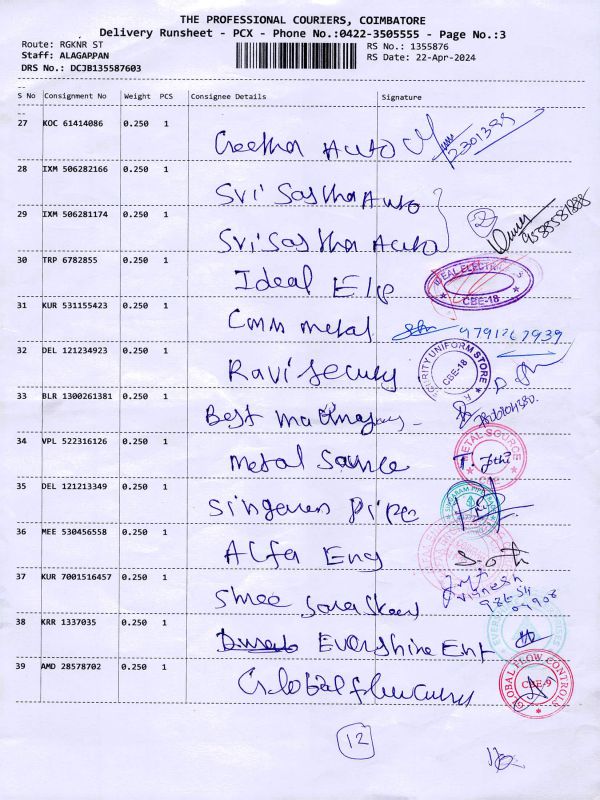 THE PROFESSIONAL COURIERS, COIMBATORE
Delivery Runsheet - PCX - Phone No.:0422-3505555 - Page No.:3
Route: RGKNR ST
RS No.: 1355876
Staff: ALAGAPPAN
RS Date: 22-Apr-2024
DRS No.: DCJB135587603
S No Consignment No Weight PCS Consignee Details Signature
27 KOC 61414086 0.250 1 Geetha Auto
28 IXM 506282166 0.250 1 Sri Sastha Auto
29 IXM 506281174 0.250 1 Sri Sastha Auto 2
30 TRP 6782855 0.250 1 Ideal Ele IDEAL ELECTRICALS CBE-18
31 KUR 531155423 0.250 1 Comm metal
32 DEL 121234923 0.250 1 Ravi Security SECURITY UNIFORM STORE CBE-18
33 BLR 1300261381 0.250 1 Best
34 VPL 522316126 0.250 1 Metal Source T. Jothi METAL SOURCE
35 DEL 121213349 0.250 1 Pipe
36 MEE 530456558 0.250 1 Alfa Eng
37 KUR 7001516457 0.250 1 Shree Vignesh
38 KRR 1337035 0.250 1 Evershine Ent
39 AMD 28578702 0.250 1 Global GLOBAL FLOW CONTROLS CBE-9
12